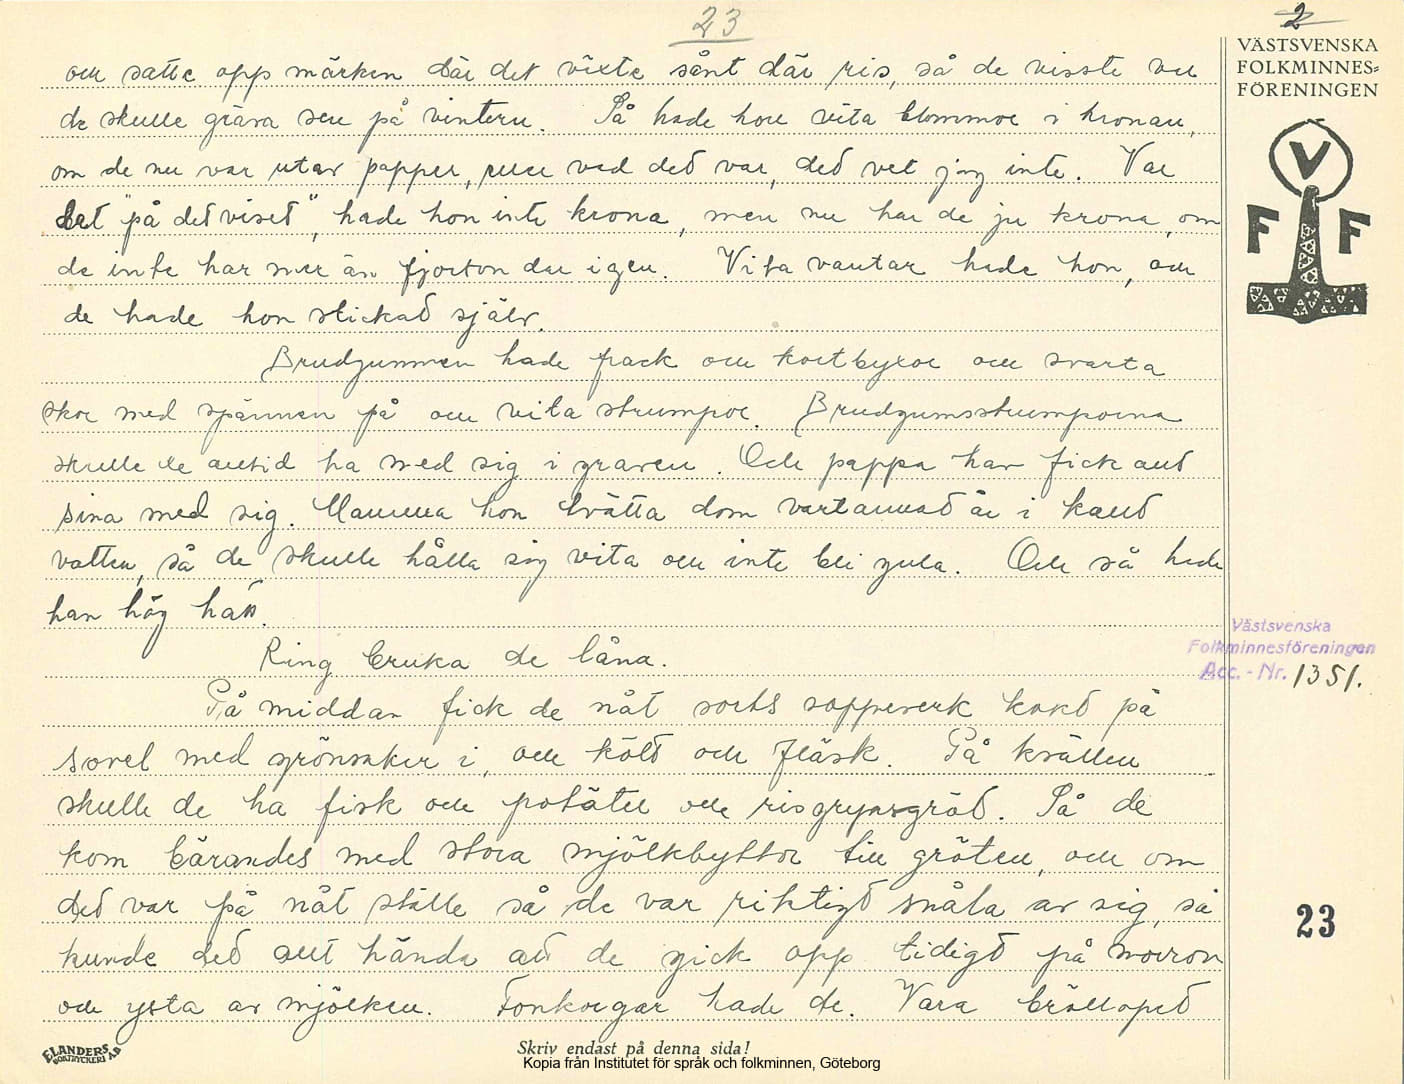 23
2
VÄSTSVENSKA
FOLKMINNES=
FÖRENINGEN
V
F F
och satte opp märken där det växte sånt där ris, så de visste var
de skulle gräva sen på vintern. Så hade hon vita blommor i kronan,
om de nu var utav papper, eller vad ded var, ded vet jag inte. Var
det "på det viset", hade hon inte krona, men nu har de ju krona, om
de inte har mer än fjorton dar igen. Vita vantar hade hon, och
de hade hon stickad själv.
Brudgummen hade frack och kortbyxor och svarta
skor med spännen på och vita strumpor. Brudgumsstrumporna
skulle de alltid ha med sig i graven. Och pappa han fick allt
sina med sig. Mamma hon tvätta dom vartannad år i kallt
vatten, så de skulle hålla sig vita och inte bli gula. Och så hade
han hög hatt.
Ring bruka de låna.
På middan fick de nåt sorts soppeverk kokd på
sovel med grönsaker i, och kött och fläsk. På kvällen
skulle de ha fisk och potäter och risgrynsgröd. Så de
kom bärandes med stora mjölkbyttor till gröten, och om
ded var på nåt ställe så de var riktigd snåla av sig, så
kunde ded allt hända att de gick opp tidigd på morron
och ysta av mjölken. Tonkorgar hade de. Vara bröllopet
Västsvenska
Folkminnesföreningen
Acc.-Nr. 1351.
23
ELANDERS
BOKTRYCKERI AB
Skriv endast på denna sida!
Kopia från Institutet för språk och folkminnen, Göteborg